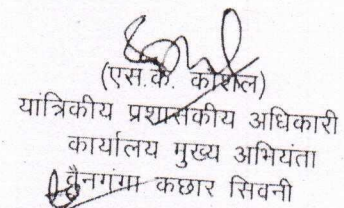 (एस.के. कौशल)
यांत्रिकीय प्रशासकीय अधिकारी
कार्यालय मुख्य अभियंता
वैनगंगा कछार सिवनी